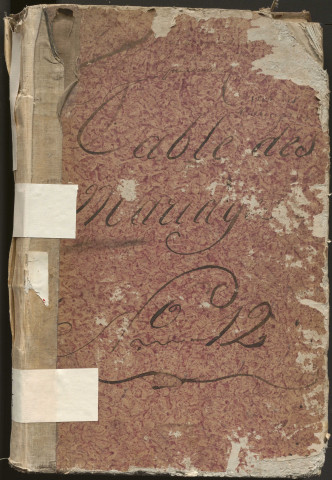 Table des
Mariés
No 12